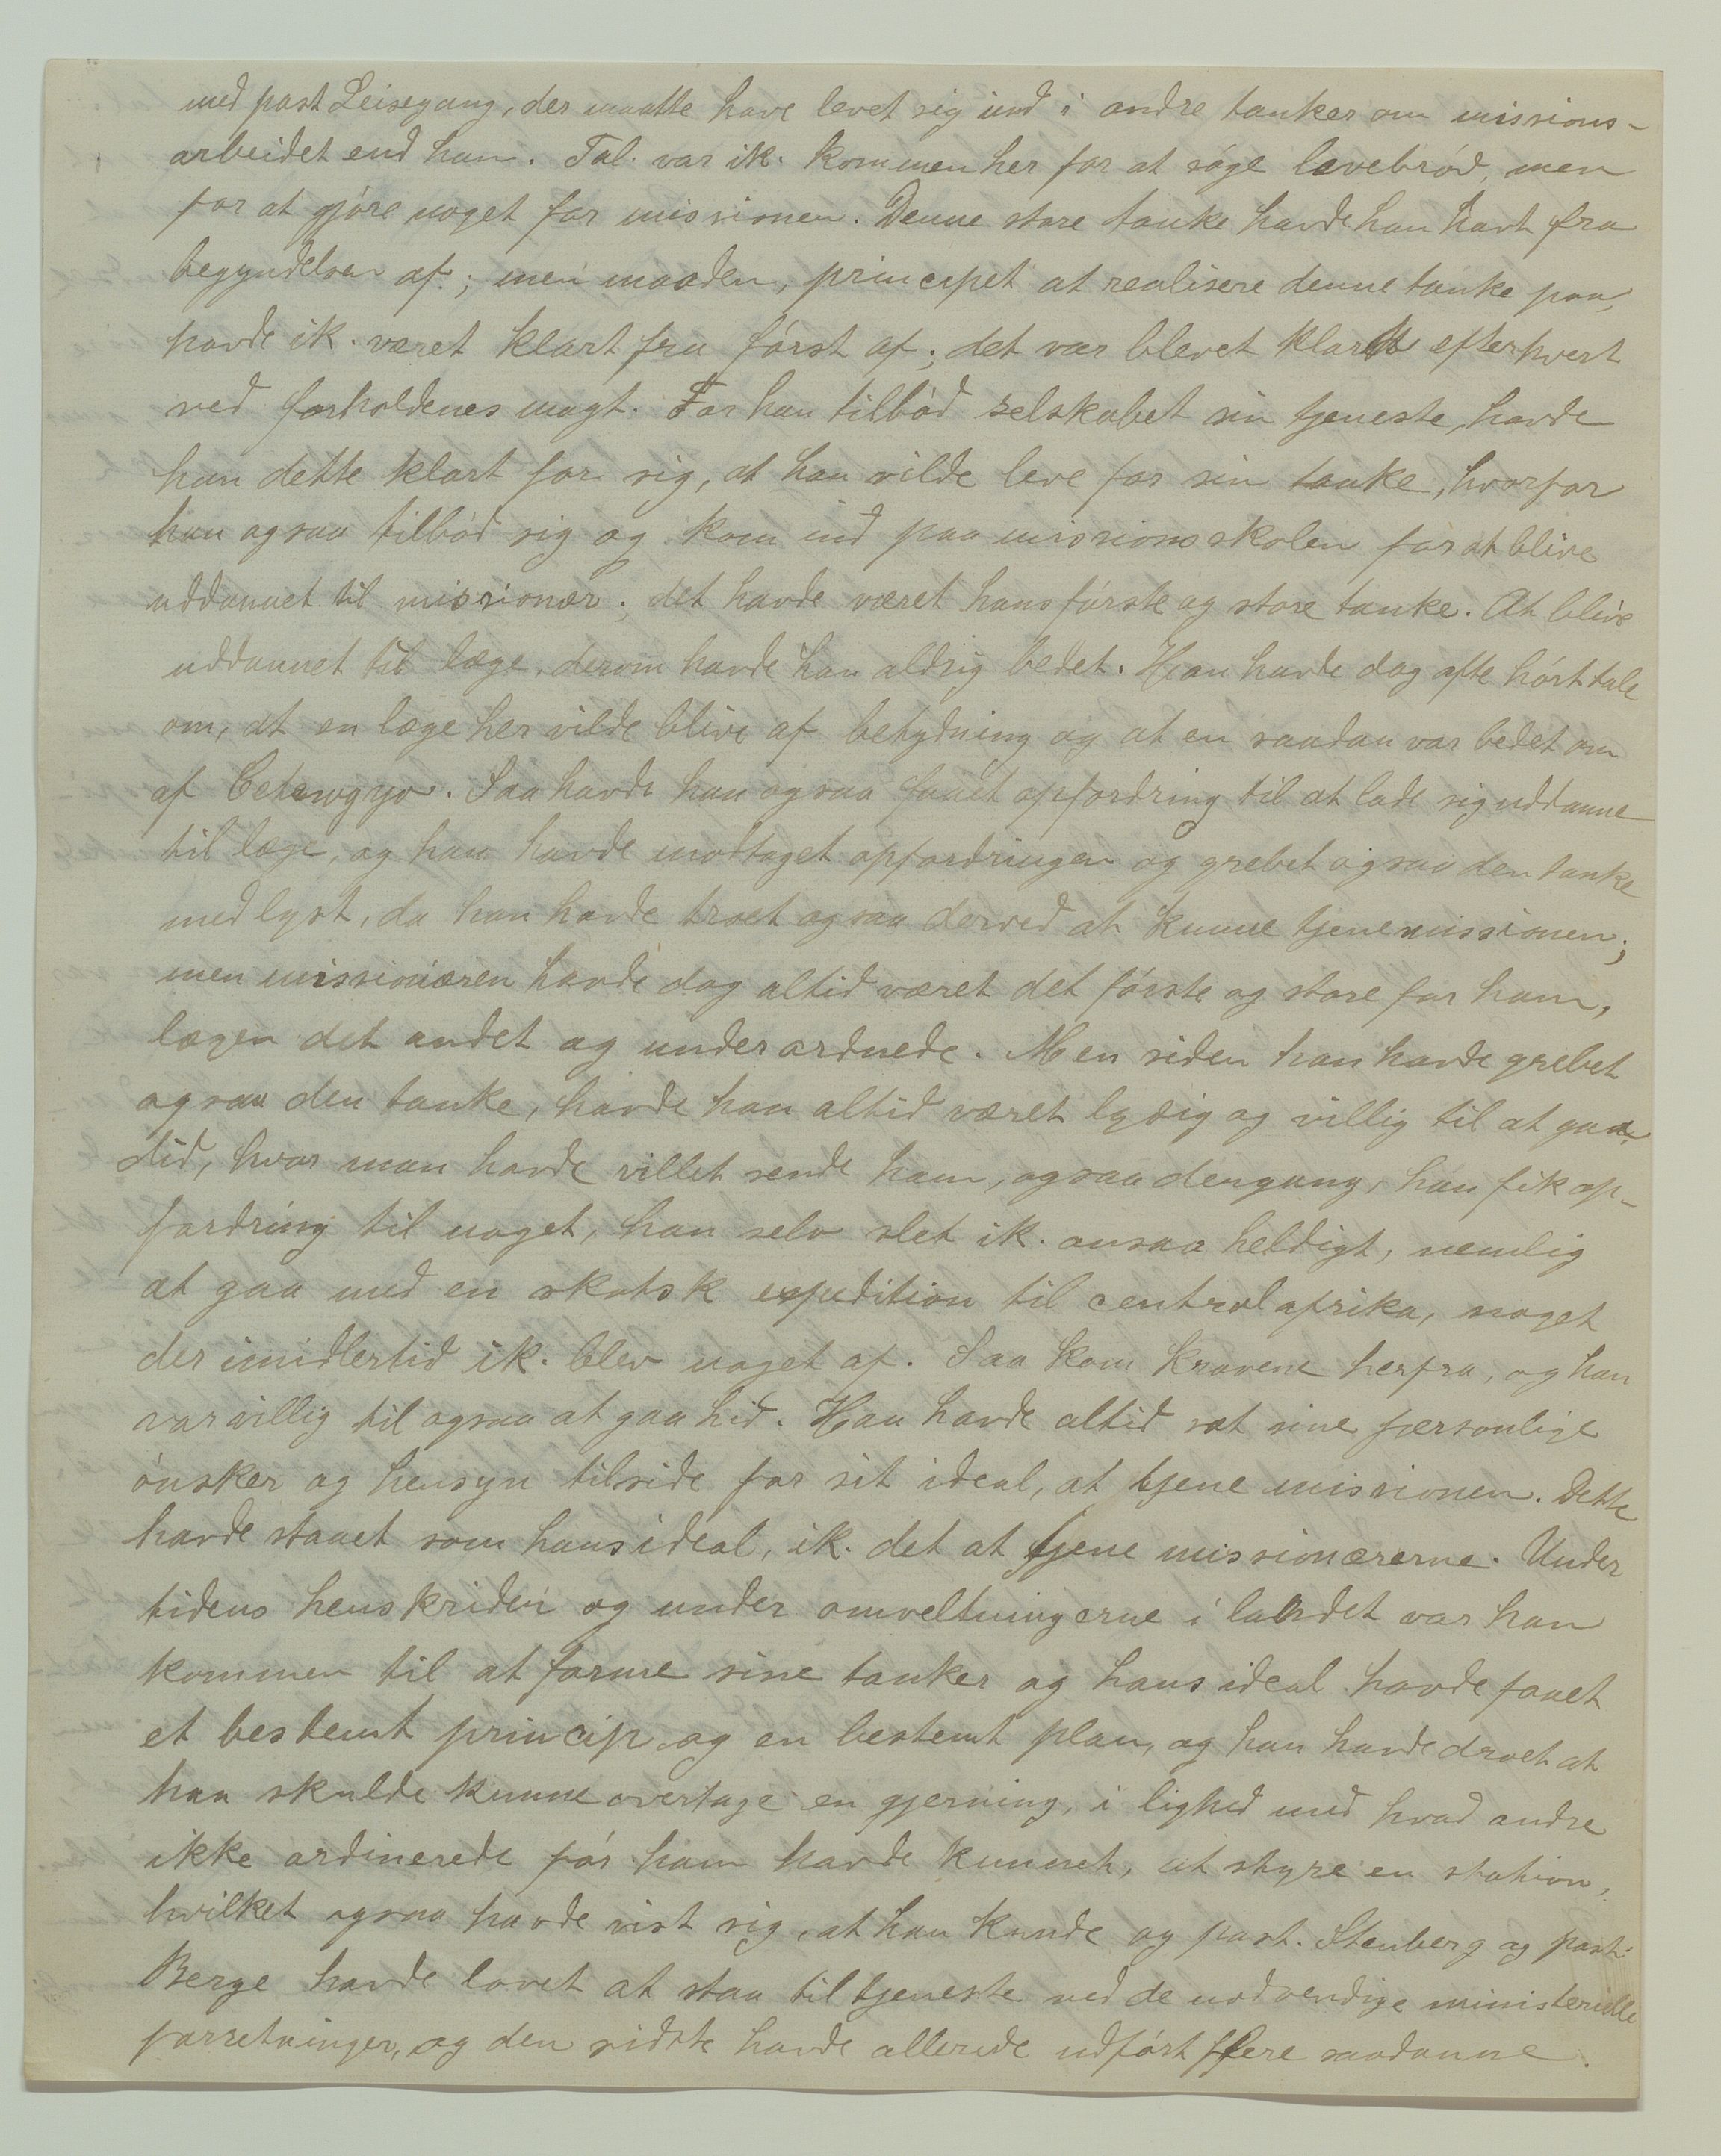 med past Leisegang, der maatte have levet sig ind i andre tanker om missions-
arbeidet end han. Tal. var ik. kommen her for at søge levebrød, men
for at gjøre noget for missionen. Denne store tanke havde han havt fra
begyndelsen af; men maaden, principet at realisere denne tanke paa,
havde ik. været klart fra først af; det var blevet klart efterhvert
ved forholdenes magt. Før han tilbød selskabet sin tjeneste, havde
han dette klart for sig, at han vilde leve for sin tanke, hvorfor
han ogsaa tilbød sig og kom ind paa missionsskolen for at blive
uddannet til missionær; det havde været hans første og store tanke. At blive
uddannet til læge, derom havde han aldrig bedet. Han havde dog ofte hørt tale
om, at en læge her vilde blive af betydning og at en saadan var bedet om
af Cetewayo. Saa havde han ogsaa faaet opfordring til at lade sig uddanne
til læge, og han havde modtaget opfordringen og grebet ogsaa den tanke
med lyst, da han havde troet ogsaa derved at kunne tjene missionen;
men missionæren havde dog altid været det første og store for ham,
lægen det andet og underordnede. Men siden han havde grebet
ogsaa den tanke, havde han altid været lydig og villig til at gaa
did, hvor man havde villet sende ham, ogsaa dengang, han fik op-
fordring til noget, han selv slet ik. ansaa heldigt, nemlig
at gaa med en skotsk expedition til centralafrika, noget
der imidlertid ik. blev noget af. Saa kom kravene herfra, og han
var villig til ogsaa at gaa hid. Han havde altid sat sine personlige
ønsker og hensyn tilside for sit ideal, at tjene missionen. Dette
havde staaet som hans ideal, ik. det at tjene missionærerne. Under
tidens henskriden og under omveltningerne i landet var han
kommen til at forme sine tanker og hans ideal havde faaet
et bestemt princip og en bestemt plan, og han havde droet at
han skulde kunne overtage en gjerning, i lighed med hvad andre
ikke ordinerede før ham havde kunnet, at styre en station,
hvilket ogsaa havde vist sig, at han kunde og past. Stenberg og past.
Berge havde lovet at staa til tjeneste ved de nødvendige ministerielle
forretninger, og den sidste havde allerede udført flere saadanne.